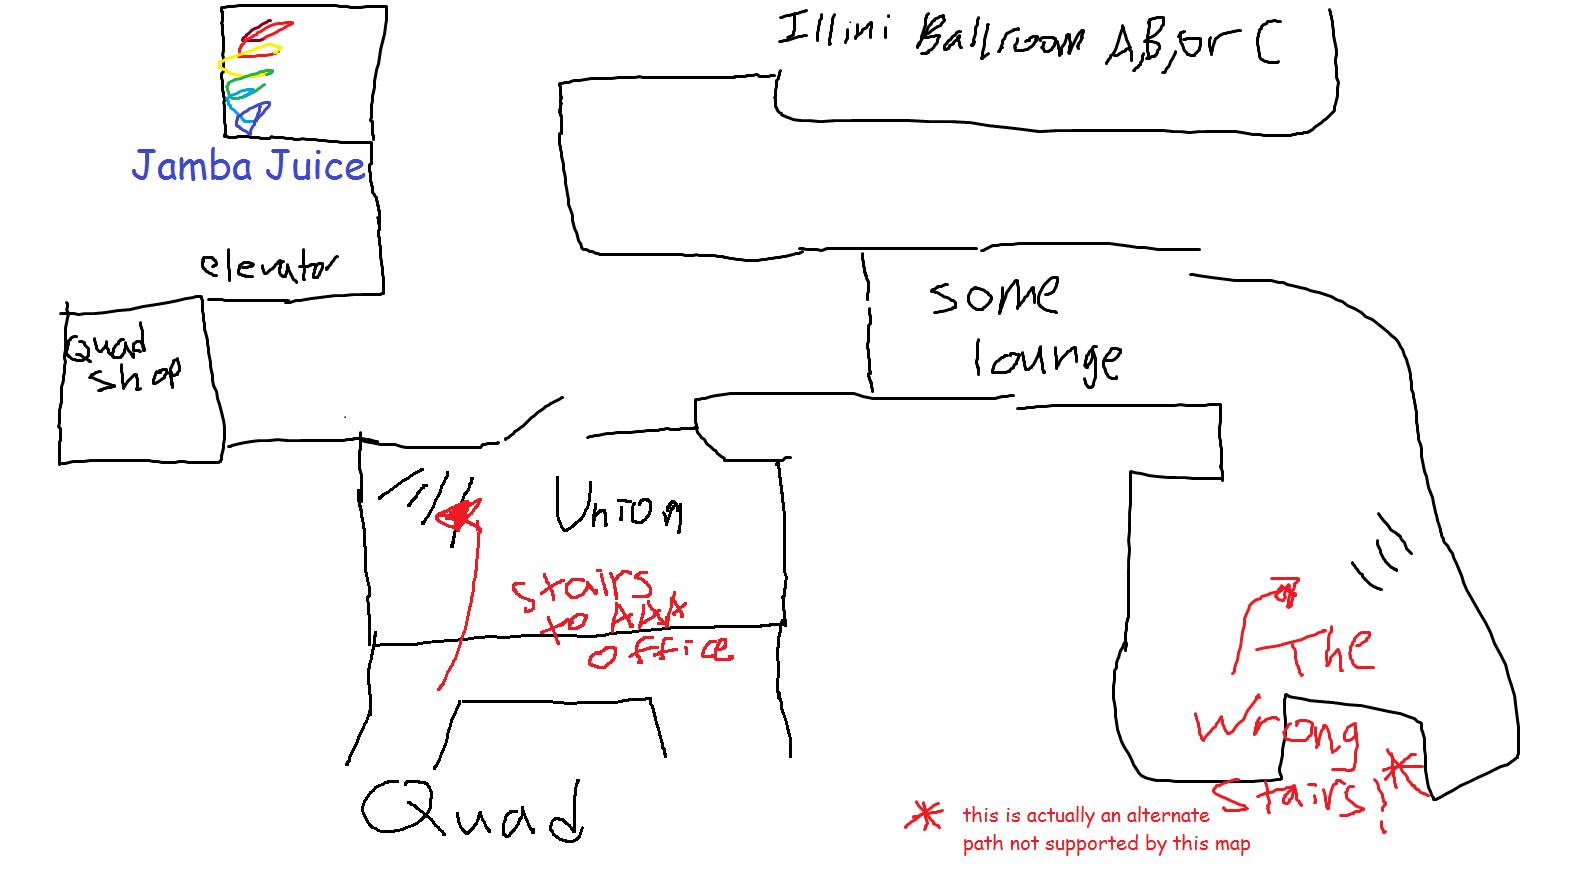 Illini Ballroom A,B,or C
Jamba Juice
elevator
Quad
shop
some
lounge
Union
stairs
to AAA
office
The
Wrong
Stairs! *
Quad
* this is actually an alternate
path not supported by this map